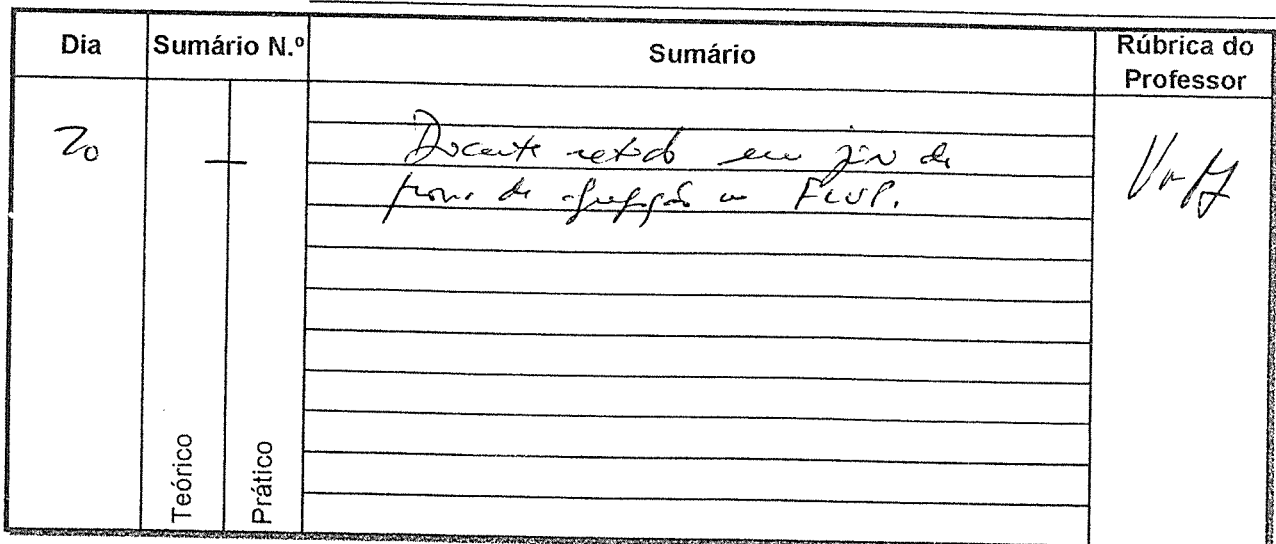 Dia Sumário N.º Sumário Rúbrica do Professor
20 — Docente retido em júri de
provas de agregação na FLUP.
Teórico Prático